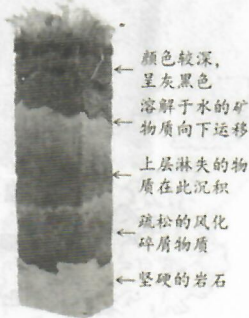 颜色较深,
呈灰黑色
溶解于水的矿
物质向下运移
上层淋失的物
质在此沉积
疏松的风化
碎屑物质
坚硬的岩石